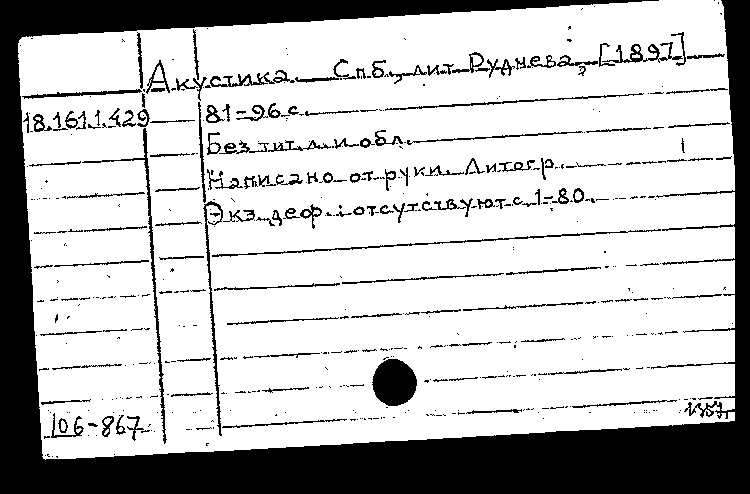 Акустика. Спб., лит. Руднева, [1897]
18.161.1.429
81-96 с.
Без тит. л. и обл.
Написано от руки. Литогр.
Экз. деф.: отсутствуют с. 1-80.
106-867